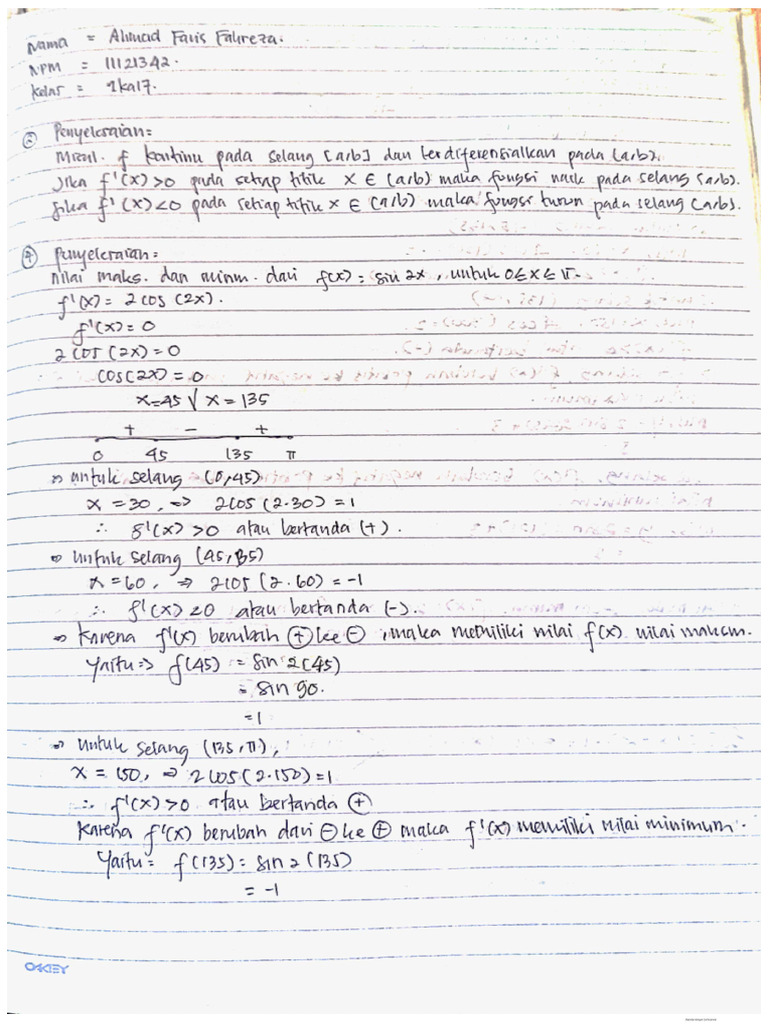 Nama = Ahmad Faris Fahreza.
NPM = 11121342.
Kelas = 2ka17.
③ Penyelesaian =
Misal. f kontinu pada selang [a,b] dan terdiferensialkan pada (a,b).
Jika f'(x) > 0 pada setiap titik x ∈ (a,b) maka fungsi naik pada selang (a,b).
Jika f'(x) < 0 pada setiap titik x ∈ (a,b) maka fungsi turun pada selang (a,b).
④ Penyelesaian =
Nilai maks. dan minm. dari f(x) = sin 2x, untuk 0 ≤ x ≤ π.
f'(x) = 2 cos (2x).
f'(x) = 0
2 cos (2x) = 0
cos (2x) = 0
x = 45 √ x = 135
+ - +
0 45 135 π
⇒ untuk selang (0,45)
x = 30, ⇒ 2 cos (2.30) = 1
∴ f'(x) > 0 atau bertanda (+).
⇒ untuk selang (45,135)
x = 60, ⇒ 2 cos (2.60) = -1
∴ f'(x) < 0 atau bertanda (-).
⇒ Karena f'(x) berubah ⊕ ke ⊖, maka memiliki nilai f(x) nilai maksm.
Yaitu ⇒ f(45) = sin 2(45)
= sin 90.
= 1
⇒ untuk selang (135, π),
x = 150, ⇒ 2 cos (2.150) = 1
∴ f'(x) > 0 atau bertanda ⊕
Karena f'(x) berubah dari ⊖ ke ⊕ maka f'(x) memiliki nilai minimum.
Yaitu = f(135) = sin 2 (135)
= -1
OAKEY